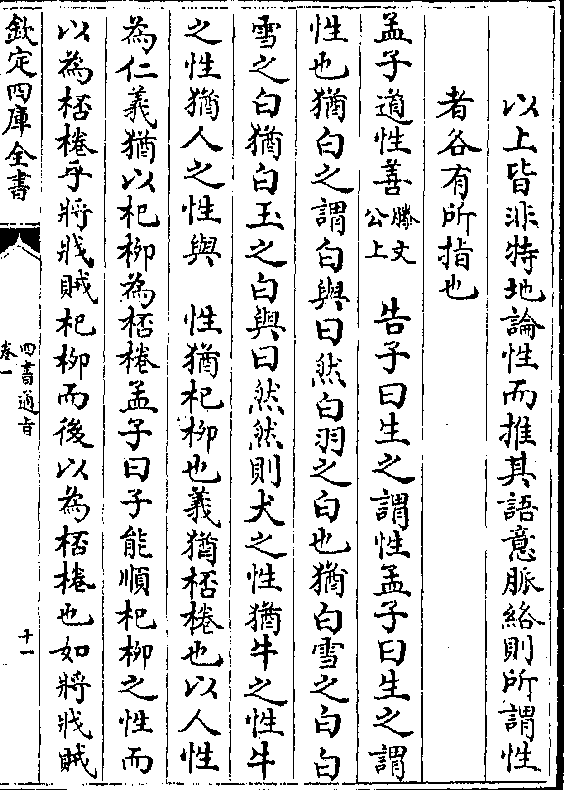 以上皆非特地論性而推其語意脈絡則所謂性
者各有所指也
孟子道性善滕文公上　告子曰生之謂性孟子曰生之謂
性也猶白之謂白與曰然白羽之白也猶白雪之白白
雪之白猶白玉之白與曰然然則犬之性猶牛之性牛
之性猶人之性與　性猶杞柳也義猶桮棬也以人性
為仁義猶以杞柳為桮棬孟子曰子能順杞柳之性而
以為桮棬乎將戕賊杞柳而後以為桮棬也如將戕賊
欽定四庫全書
四書通旨
卷一
十一